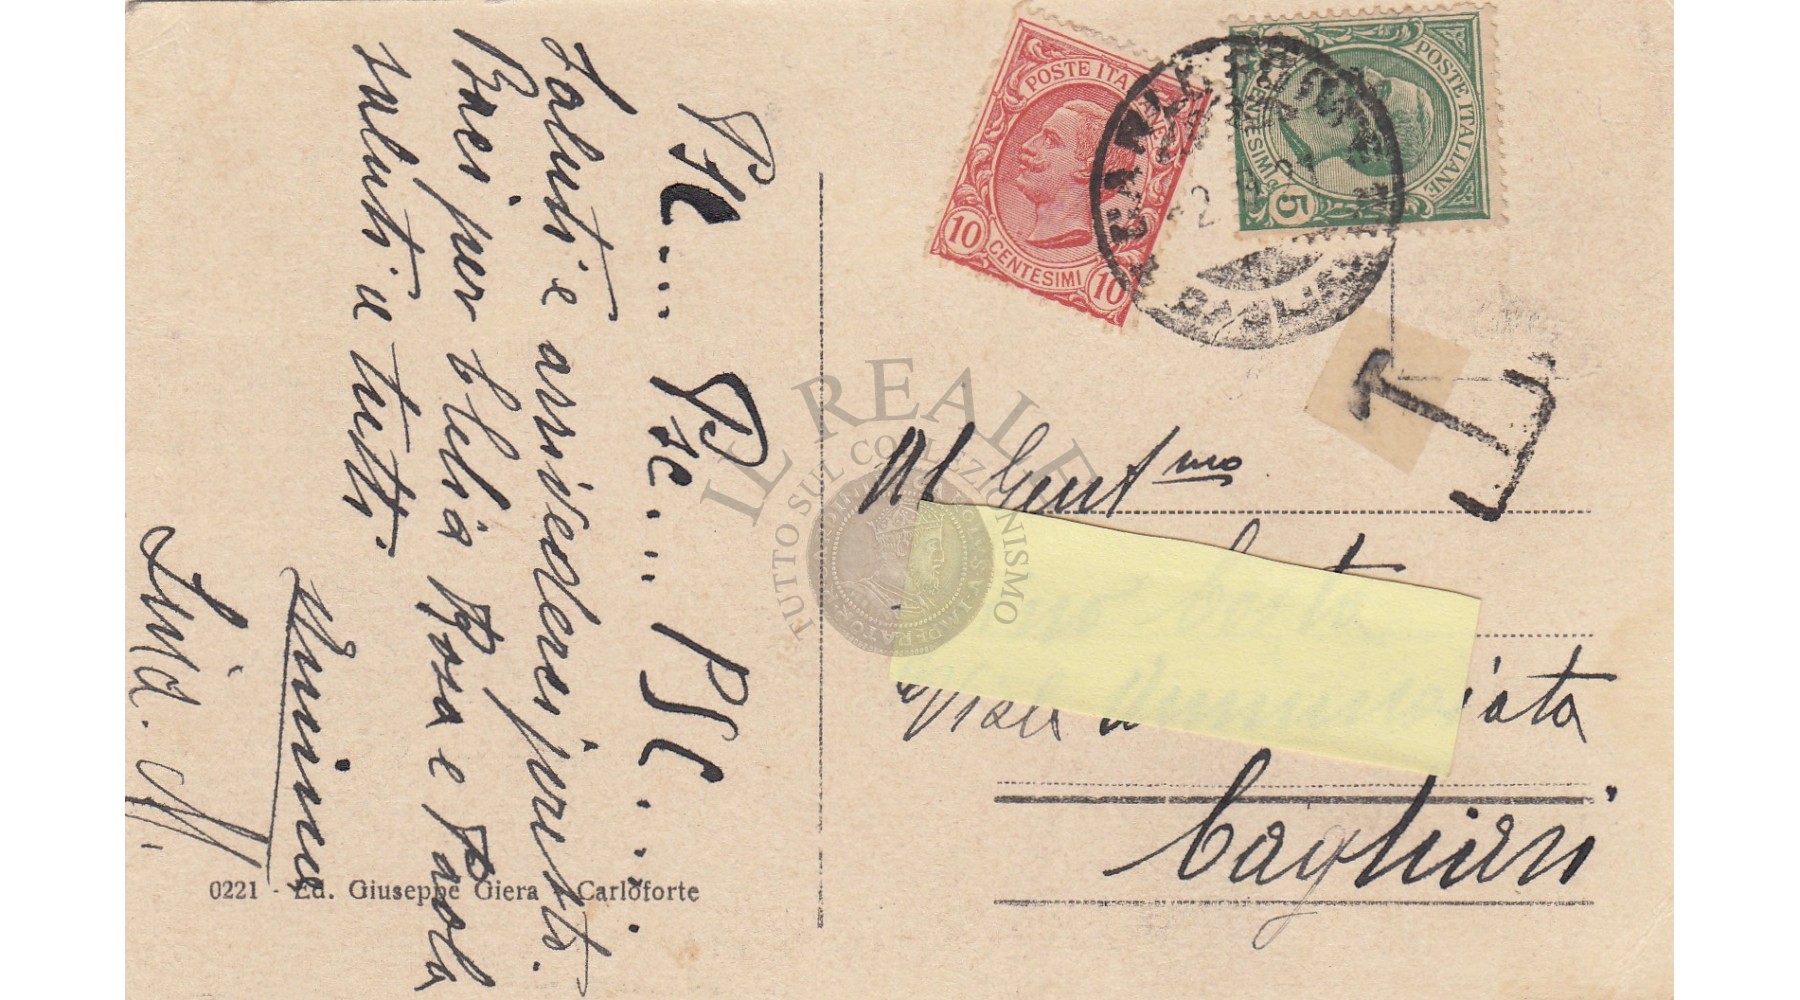 Psc... Psc... PSC....
Saluti e arrivederci presto.
Baci per Clelia Rosa e Paola
saluti a tutti.
0221 - Ed. Giuseppe Giera - Carloforte
POSTE ITALIANE
10 CENTESIMI 10
POSTE ITALIANE
CENTESIMI 5
CARLOFORTE
T
Al Gent.mo
Viale
Cagliari
IL REALE
TUTTO SUL COLLEZIONISMO